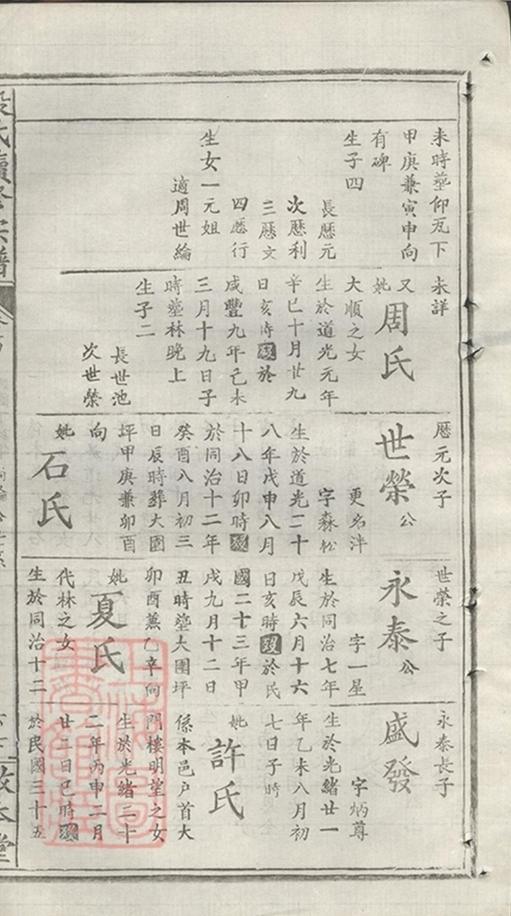 未時塟仰瓦下
甲庚兼寅申向
有碑
生子四
長厯元
次厯利
三厯文
四厯行
生女一元姐
適周世綸
未詳
又
妣
周氏
大順之女
生於道光元年
辛巳十月廿九
日亥時歿於
咸豐九年乙未
三月十九日子
時塟林晚上
生子二
長世池
次世榮
厯元次子
世榮公
更名泮
字森松
生於道光二十
八年戊申八月
十八日卯時歿
於同治十二年
癸酉八月初三
日辰時葬大園
坪甲庚兼卯酉
向
妣
石氏
世榮之子
永泰公
字一星
生於同治七年
戊辰六月十六
日亥時歿於民
國二十三年甲
戌九月十二日
丑時塟大園坪
卯酉兼乙辛向
妣
夏氏
代林之女
生於同治十二
永泰長子
盛發
字炳尊
生於光緒廿一
年乙未八月初
七日子時
妣
許氏
係本邑户首大
門樓明堂之女
生於光緒二十
二年丙申二月
廿二日巳時歿
於民國三十五
氏續修宗譜
敬本堂